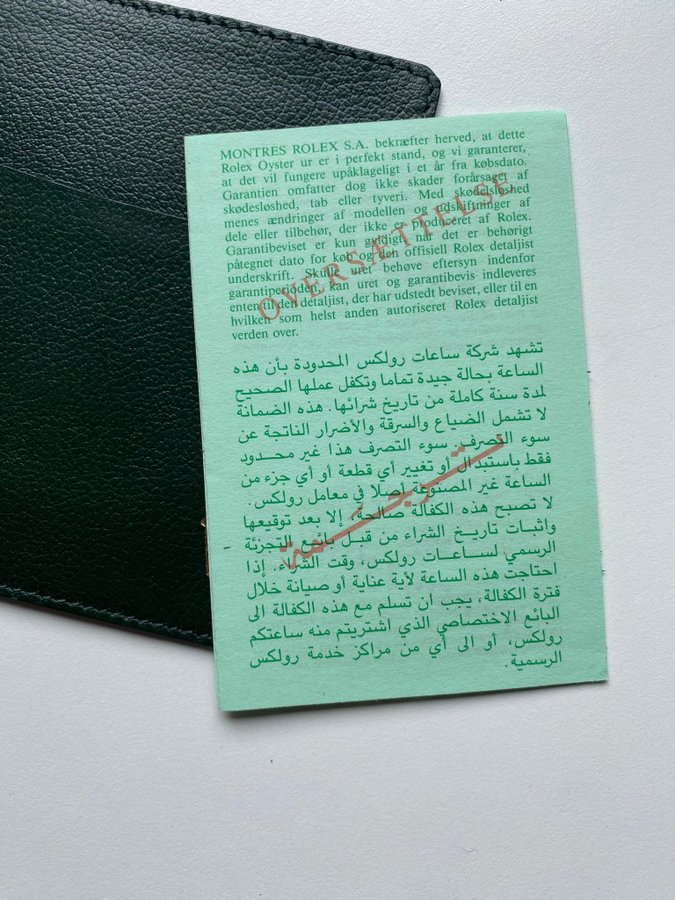 MONTRES ROLEX S.A. bekræfter herved, at dette
Rolex Oyster ur er i perfekt stand, og vi garanterer,
at det vil fungere upåklageligt i et år fra købsdato.
Garantien omfatter dog ikke skader forårsaget af
skødesløshed, tab eller tyveri. Med skødelsløshed
menes ændringer af modellen og udskiftninger af
dele eller tilbehør, der ikke er produceret af Rolex.
Garantibeviset er kun gyldigt, når det er behørigt
påtegnet dato for køb og den offisiell Rolex detaljist
underskrift. Skulle uret behøve eftersyn indenfor
garantiperioden, kan uret og garantibevis indleveres
enten til den detaljist, der har udstedt beviset, eller til en
hvilken som helst anden autoriseret Rolex detaljist
verden over.
OVERSÆTTELSE
تشهد شركة ساعات رولكس المحدودة بأن هذه
الساعة بحالة جيدة تماما وتكفل عملها الصحيح
لمدة سنة كاملة من تاريخ شرائها. هذه الضمانة
لا تشمل الضياع والسرقة والأضرار الناتجة عن
سوء التصرف. سوء التصرف هذا غير محدود
فقط باستبدال أو تغيير أي قطعة أو أي جزء من
الساعة غير المصنوعة أصلا في معامل رولكس.
لا تصبح هذه الكفالة صالحة، إلا بعد توقيعها
واثبات تاريخ الشراء من قبل بائع التجزئة
الرسمي لساعات رولكس، وقت الشراء. إذا
احتاجت هذه الساعة لأية عناية أو صيانة خلال
فترة الكفالة، يجب ان تسلم مع هذه الكفالة الى
البائع الاختصاصي الذي اشتريتم منه ساعتكم
رولكس، أو الى أي من مراكز خدمة رولكس
الرسمية.
ترجمة